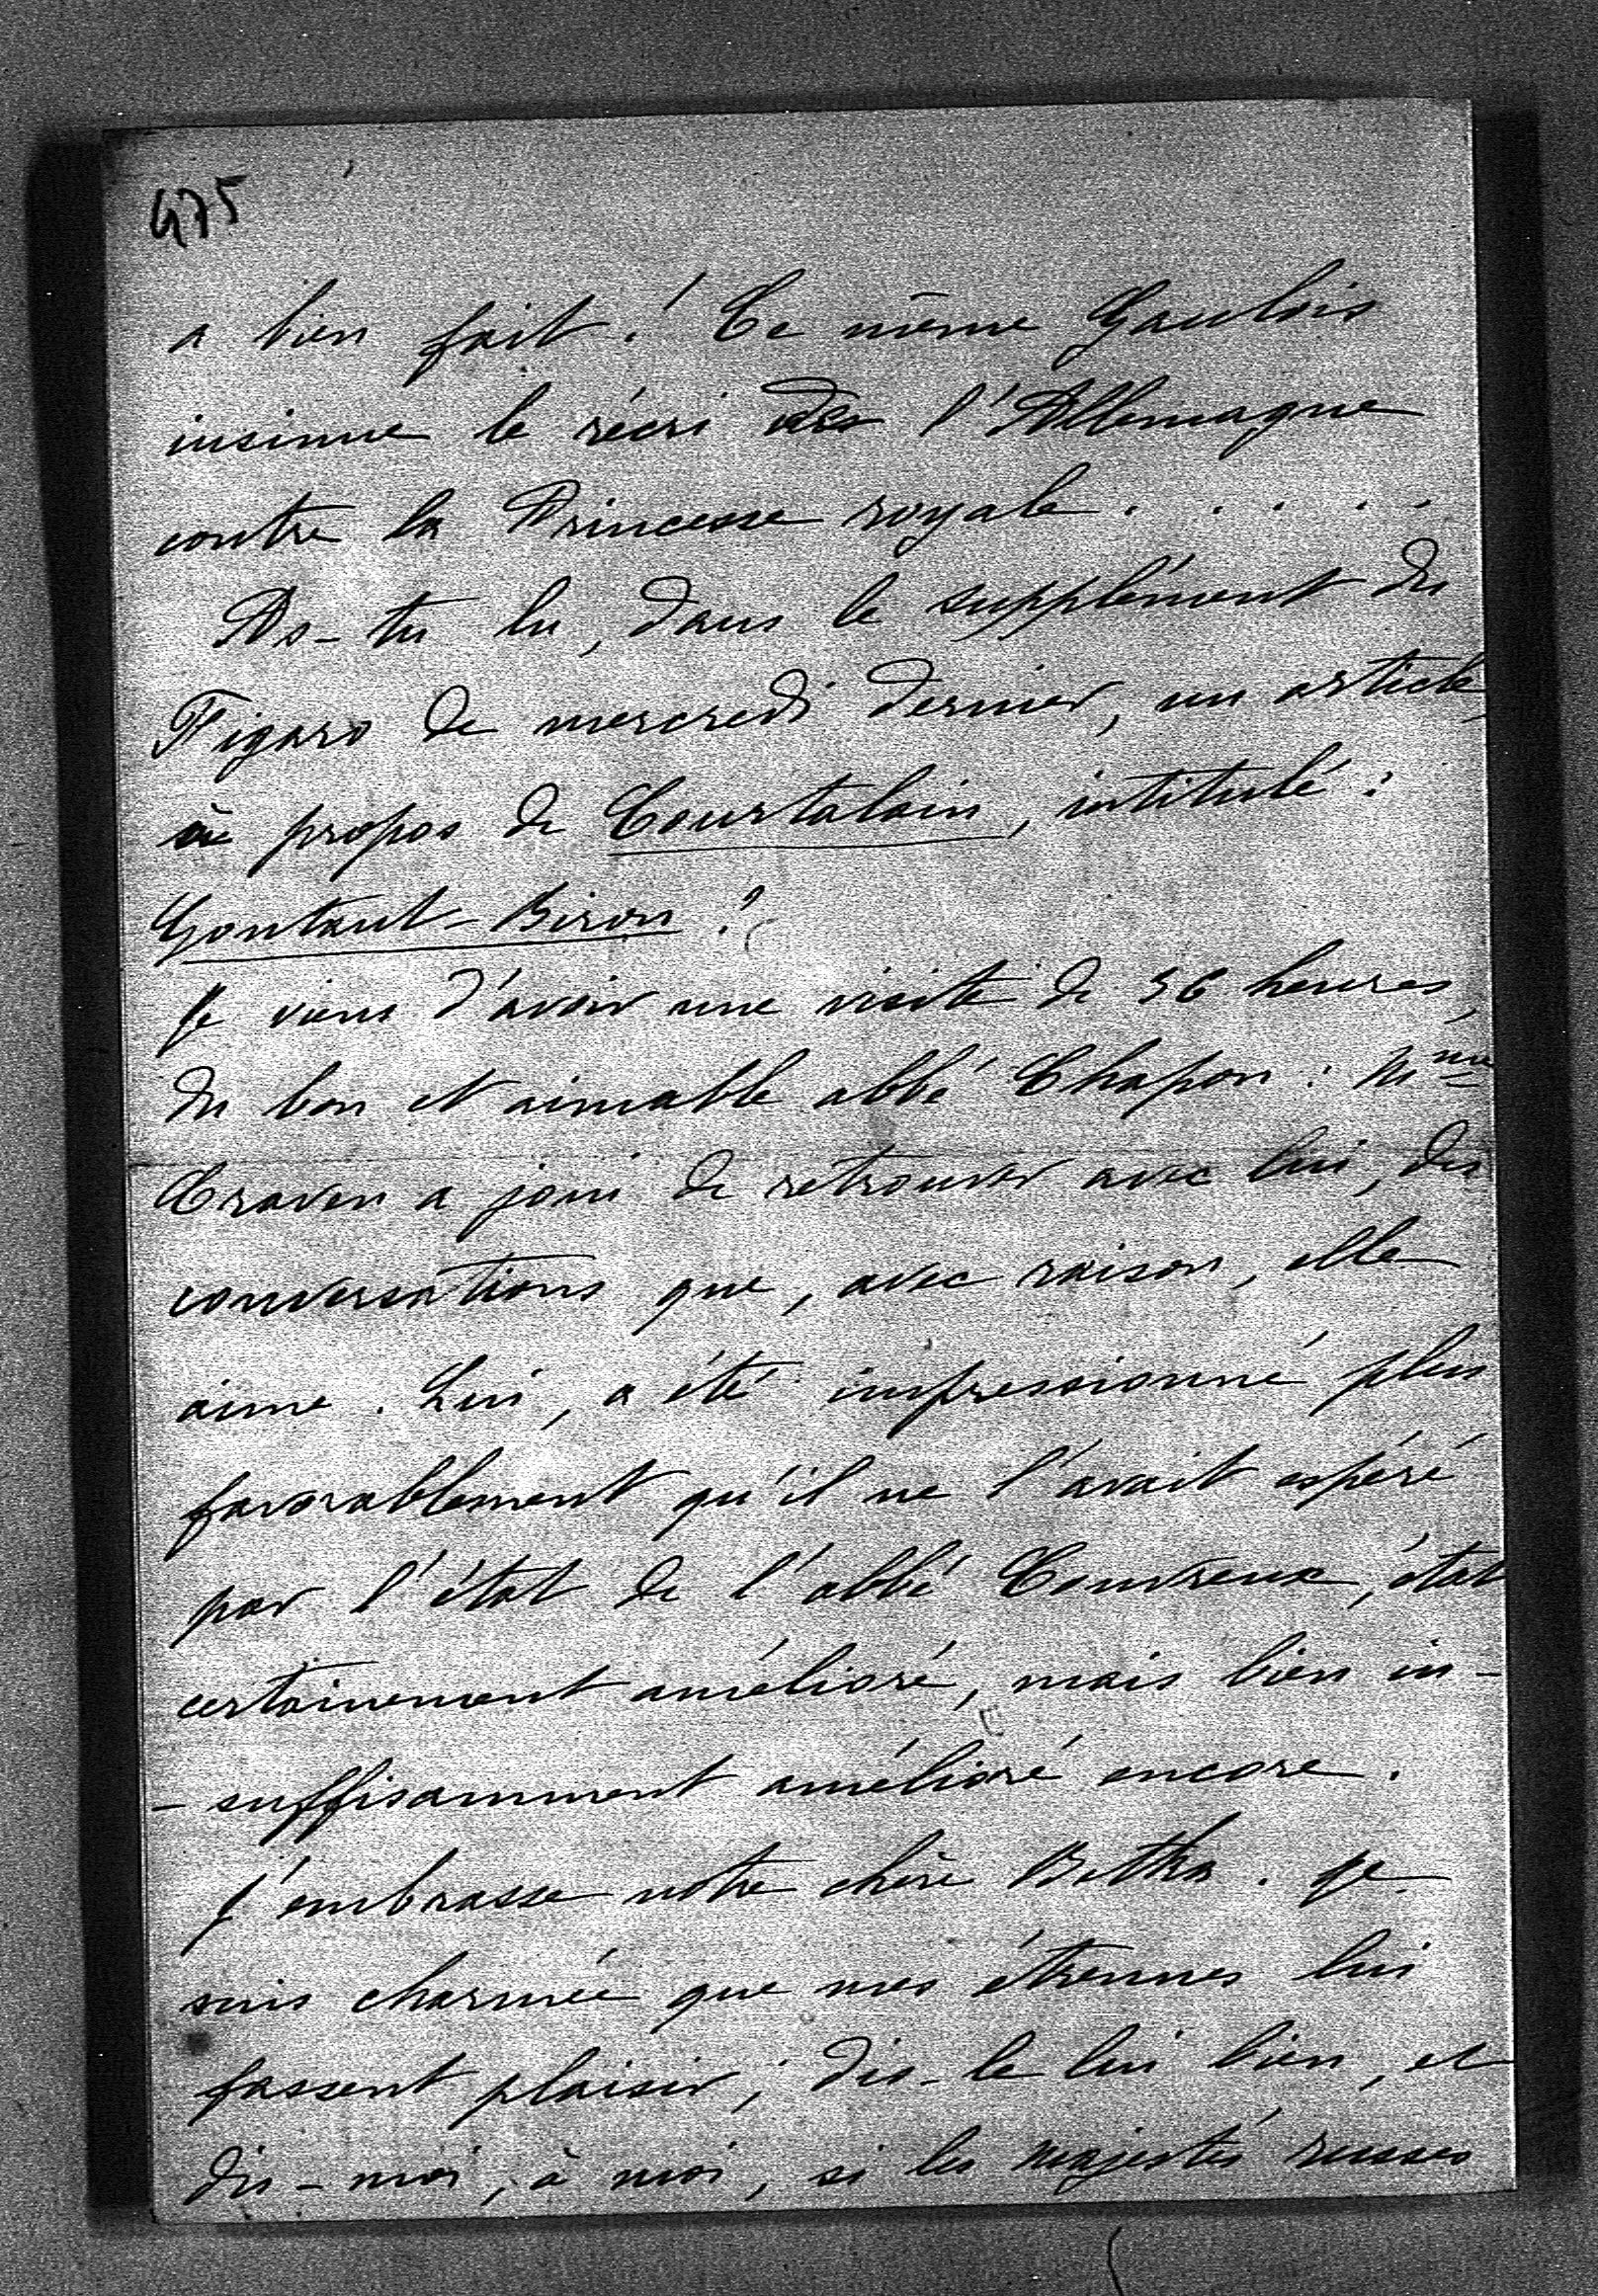 475
a bien fait! Ce même Gaulois
insinue le récri de l'Allemagne
contre la Princesse royale . . . . .
As-tu lu, dans le supplément du
Figaro de mercredi dernier, un article,
à propos de Courtalain, intitulé :
Gontaut-Biron ?
Je viens d'avoir une visite de 36 heures,
du bon et aimable abbé Chapon : Mme
Craven a joui de retrouver avec lui, des
conversations que, avec raison, elle
aime. Lui, a été impressionné plus
favorablement qu'il ne l'avait espéré
par l'état de l'abbé Couvreux, état
certainement amélioré, mais bien in-
-suffisamment amélioré encore.
J'embrasse notre chère Betka. Je
suis charmée que mes étrennes lui
fassent plaisir ; dis-le lui bien, et
dis-moi, à moi, si les majestés russes